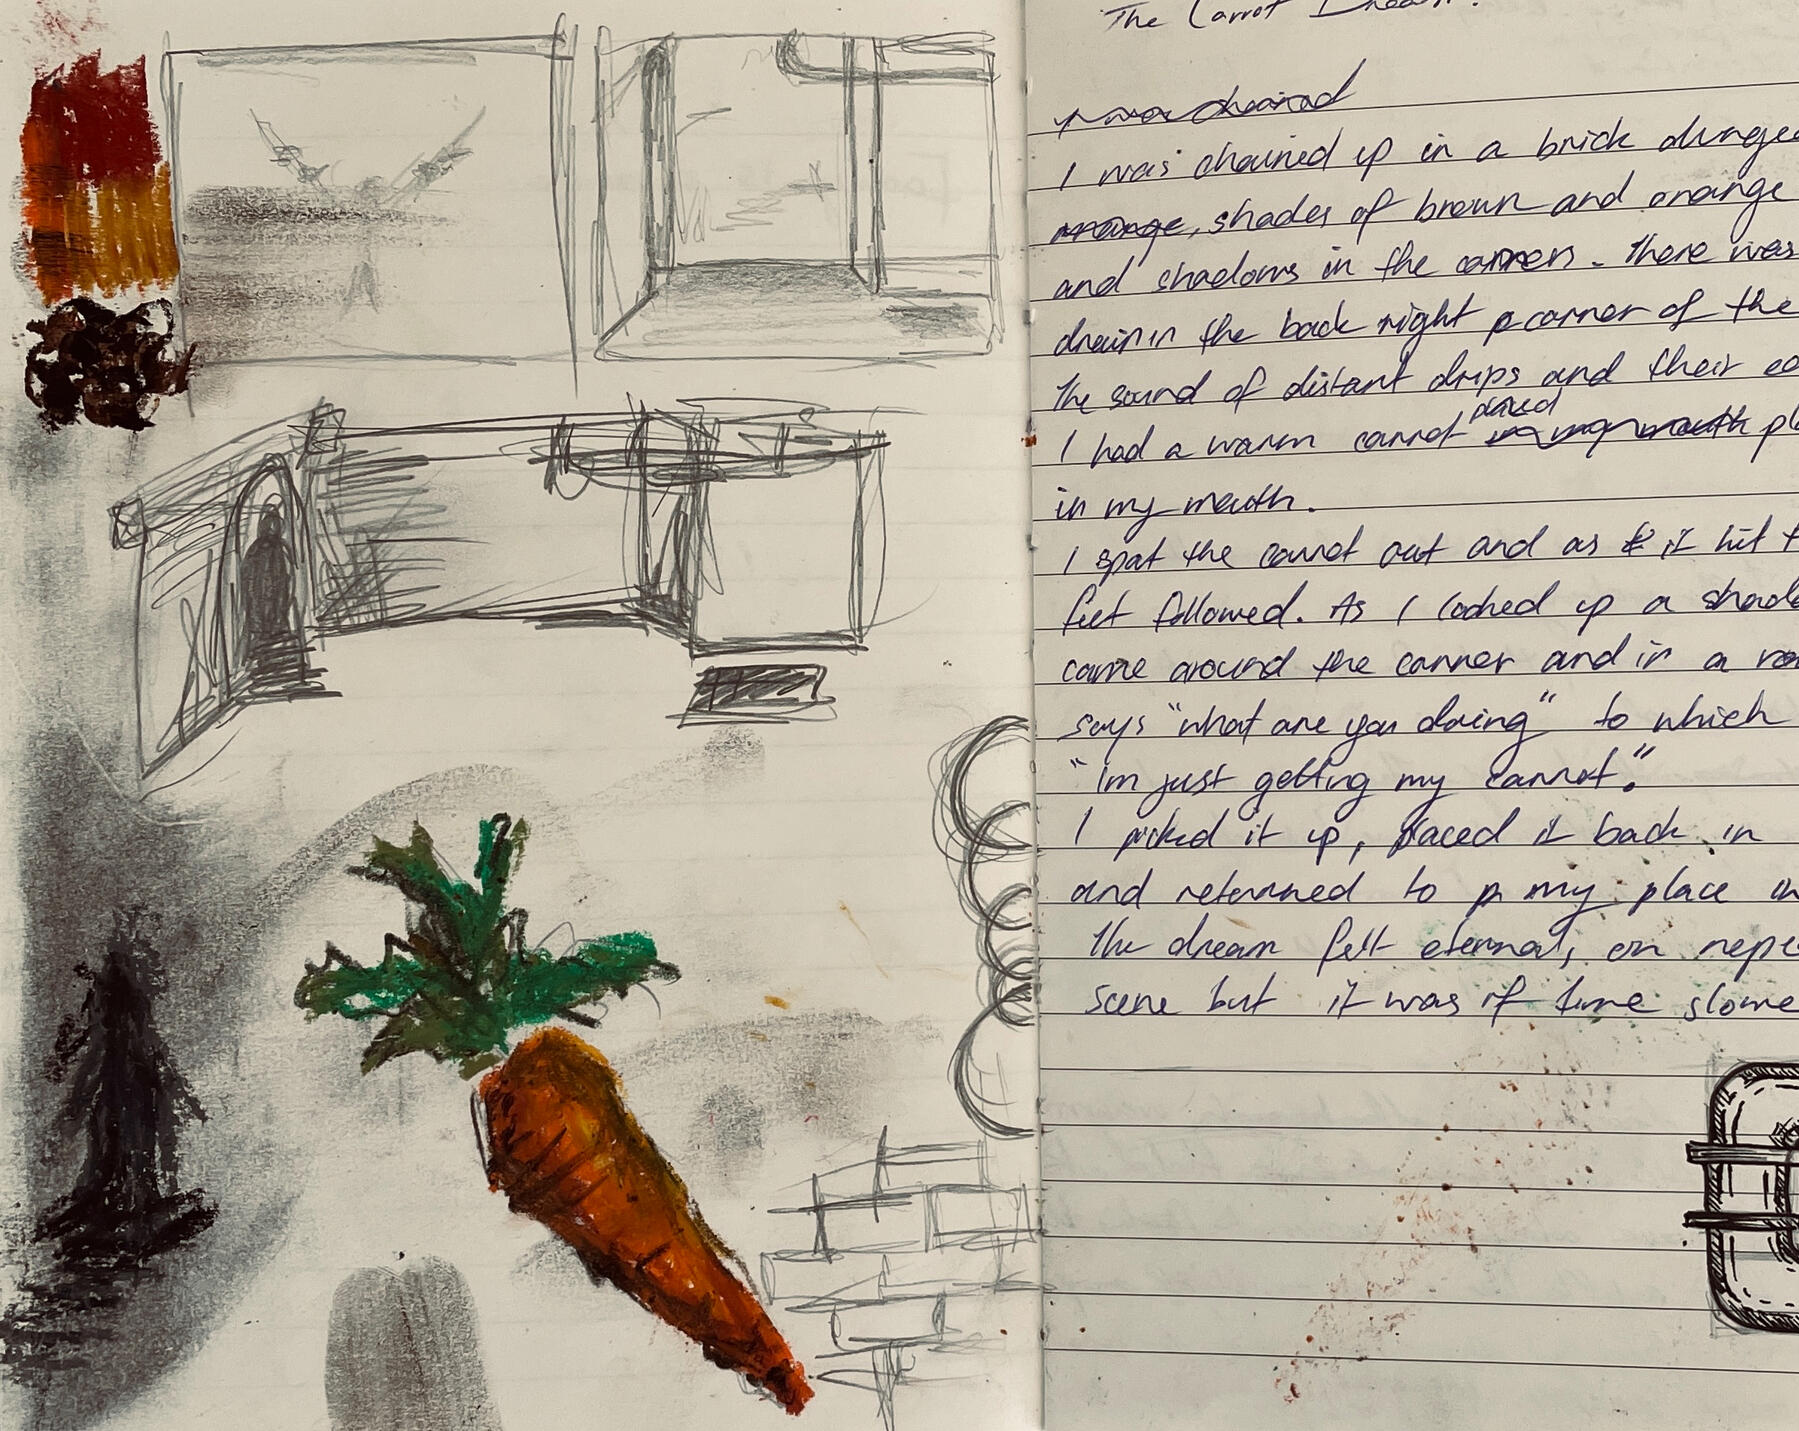 The Carrot Dream.
I was chained
I was chained up in a brick dunge
orange, shades of brown and orange
and shadows in the corners. There was
drain in the back right corner of the
the sound of distant drips and their ec
placed
I had a warm carrot in my mouth pla
in my mouth.
I spat the carrot out and as it hit t
feet followed. As I looked up a shado
came around the corner and in a
says "what are you doing" to which
"im just getting my carrot."
I picked it up, placed it back in
and returned to my place in
The dream felt eternal, on repe
scene but it was if time slowe